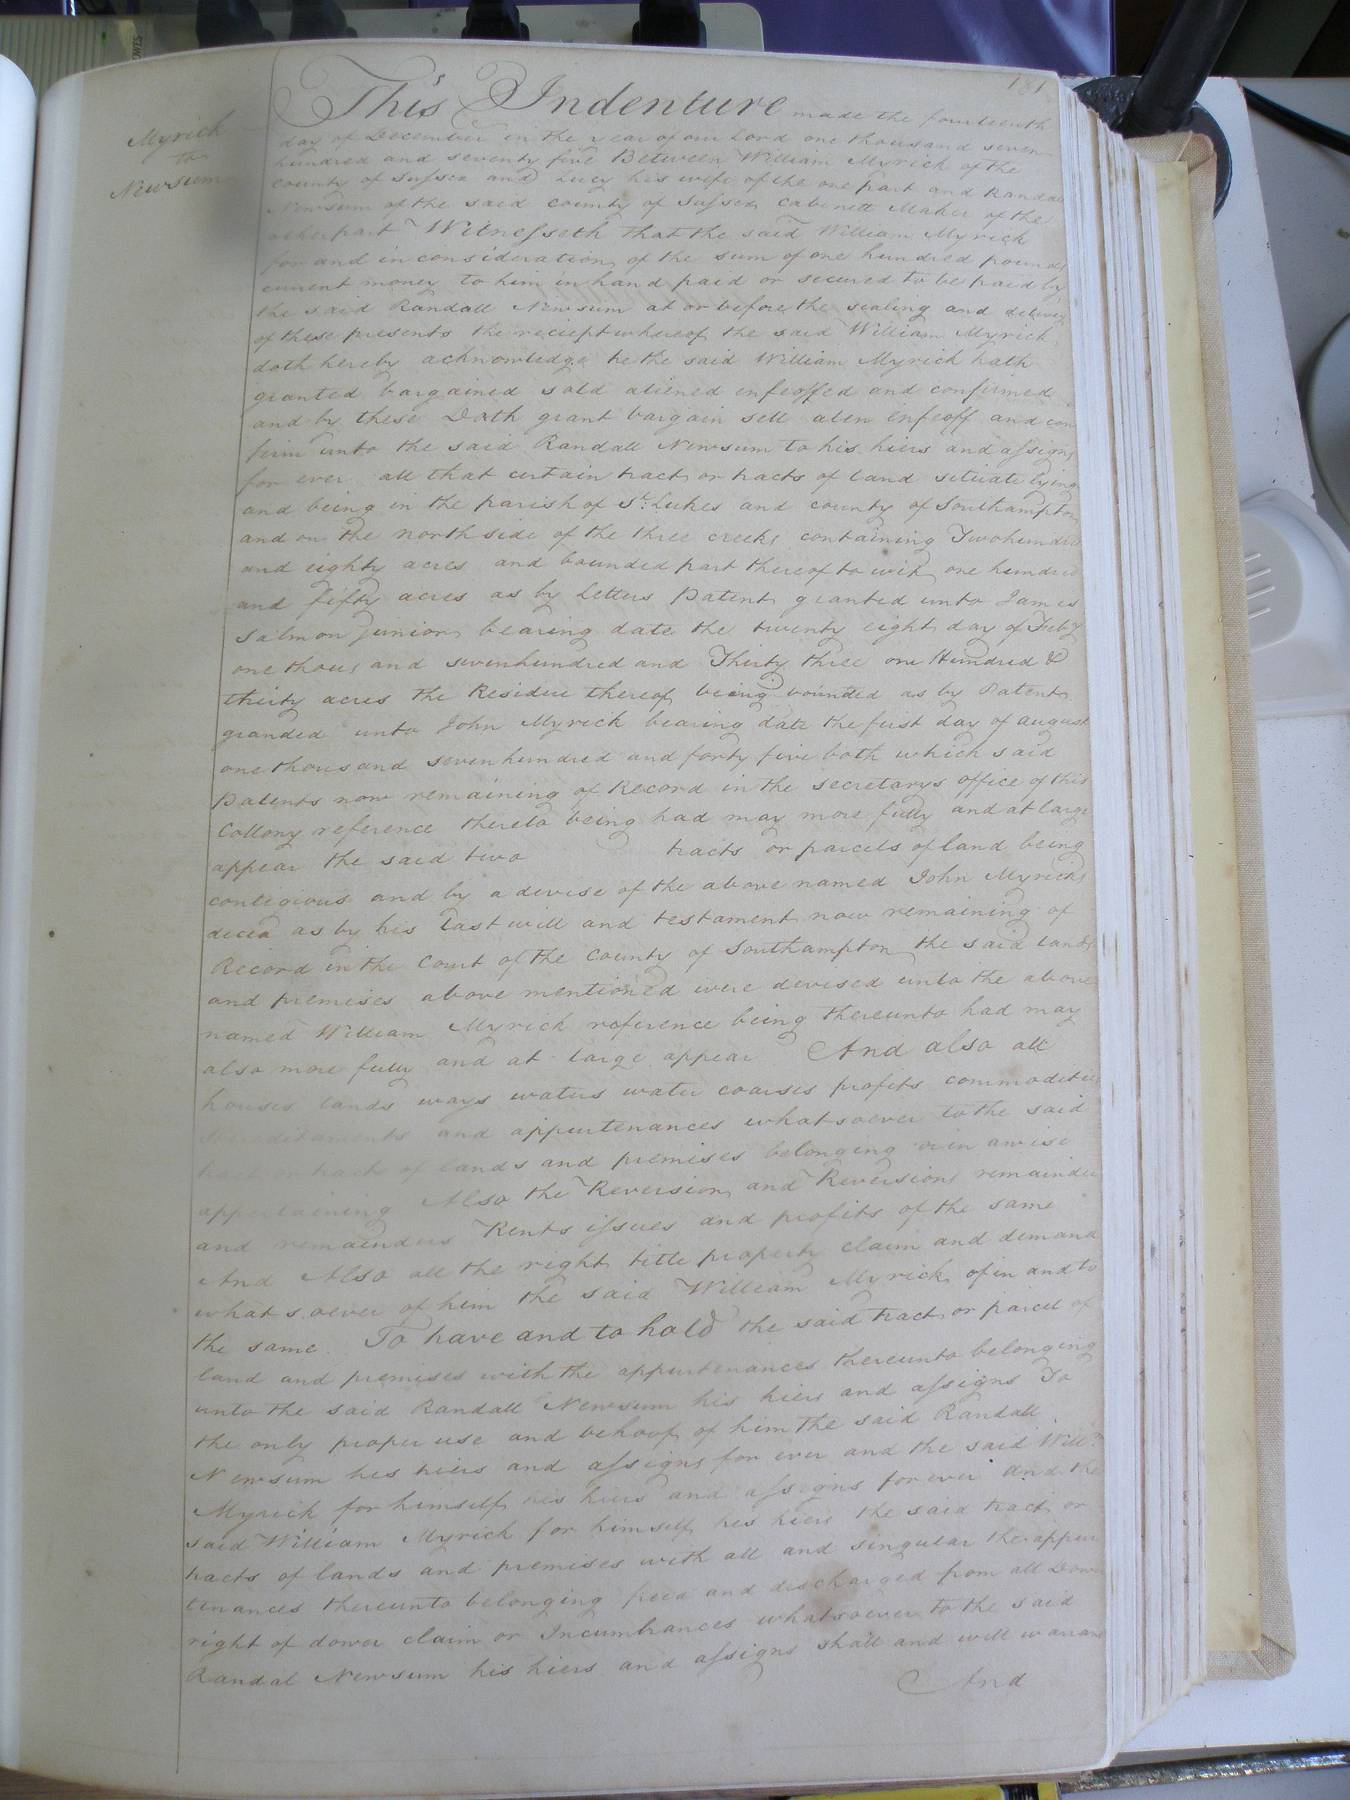 181
Myrich
to
Newsum
This Indenture made the fourteenth
day of December in the year of our Lord one thousand seven
hundred and seventy five Between William Myrick of the
County of Sussex and Lucy his wife of the one part and Randal
Newsum of the said County of Sussex Cabinett Maker of the
other part Witnesseth that the said William Myrick
for and in consideration of the sum of one hundred pounds
current money to him in hand paid or secured to be paid by
the said Randall Newsum at or before the sealing and delivery
of these presents the reciept whereof the said William Myrick
doth hereby acknowledge he the said William Myrick hath
granted bargained sold aliened enfeoffed and confirmed
and by these Doth grant bargain sell alen enfeoff and con
firm unto the said Randall Newsum to his hiers and assigns
for ever all that certain tract or tracts of land situate lying
and being in the parish of St. Lukes and county of Southampton
and on the north side of the three creeks containing Two hundred
and eighty acres and bounded part thereof to wit one hundred
and fifty acres as by Letters Patent granted unto James
Salmon junior bearing date the twenty eight day of Feby
one thousand sevenhundred and Thirty three one Hundred &
thirty acres the Residue thereof being bounded as by Patent
granded unto John Myrick bearing date the first day of august
one thousand sevenhundred and forty five both which said
Patents now remaining of Record in the secretarys office of this
Collony reference thereto being had may more fully and at large
appear the said two tracts or parcels of land being
contegious and by a devise of the above named John Myrick
decd as by his Last will and testament now remaining of
Record in the Court of the County of Southampton the said lands
and premises above mentioned were devised unto the above
named William Myrick reference being thereunto had may
also more fully and at large appear And also all
houses lands ways waters water coarses profits commodities
Hereditaments and appurtenances whatsoever to the said
tract or tracts of lands and premises belonging or in awise
appertaining Also the Reversion and Reversions remainder
and remainders Rents issues and profits of the same
And Also all the right title property claim and demand
whatsoever of him the said William Myrick of in and to
the same. To have and to hold the said tract or parcel of
land and premises with the appurtenances thereunto belonging
unto the said Randall Newsum his hiers and assigns To
the only proper use and behoof of him the said Randall
Newsum his hiers and assigns for ever and the said Willm
Myrick for himself his hiers and assigns forever and the
said William Myrick for himself his hiers the said tract or
tracts of lands and premises with all and singular the appur
tenances thereunto belonging freed and discharged from all Dower
right of dower claim or Incumbrances whatsoever to the said
Randal Newsum his hiers and assigns shall and will warrant
And